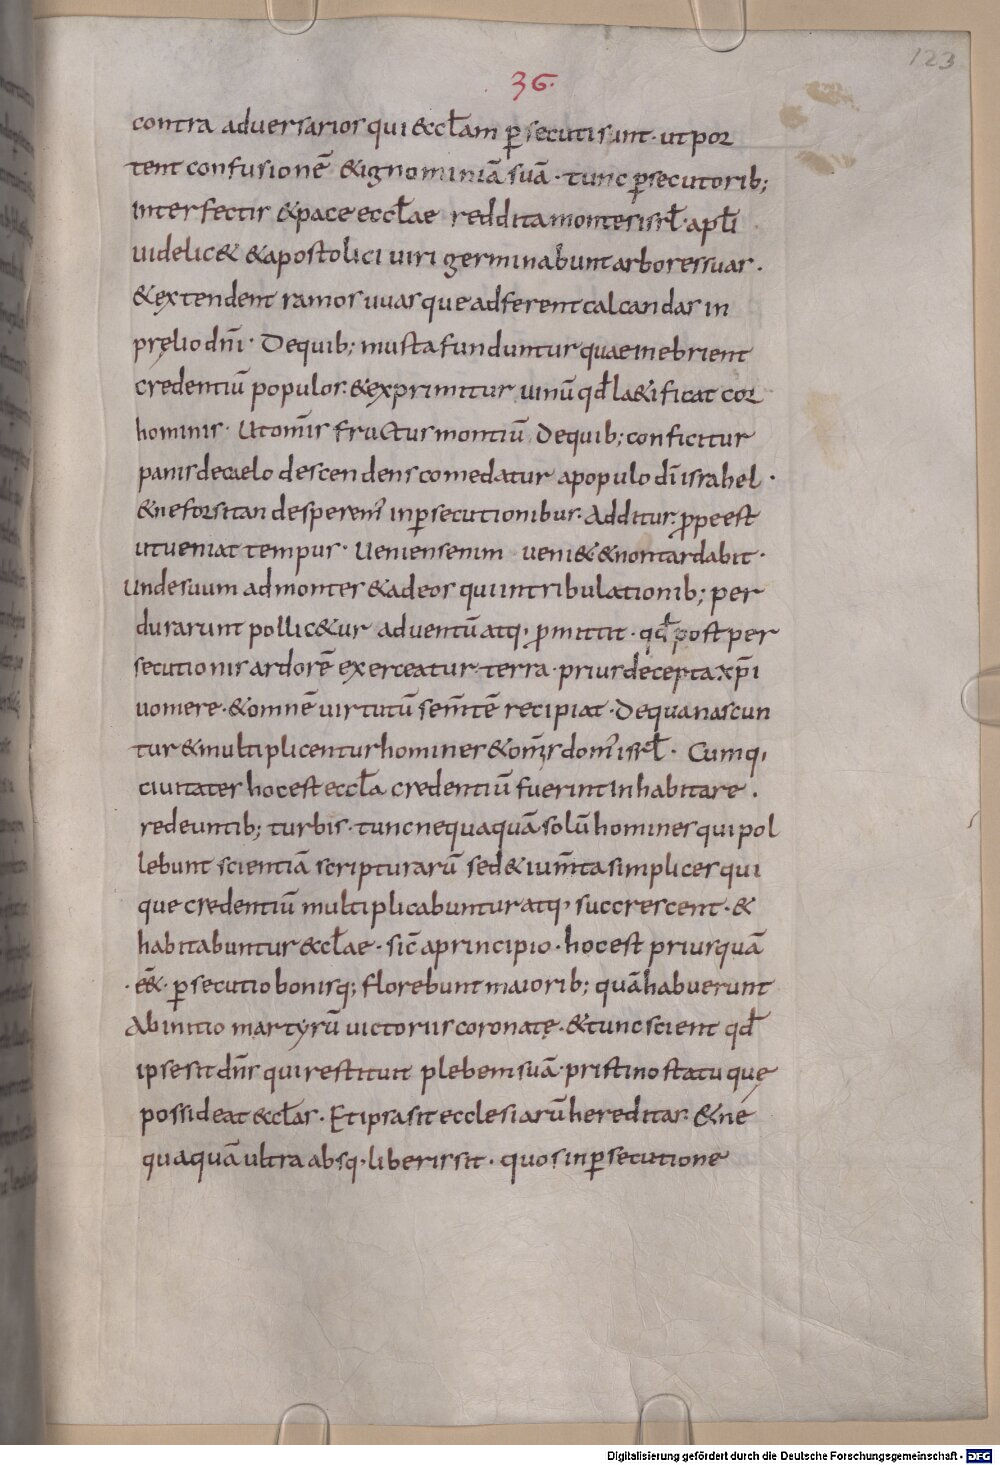 123
36.
contra adversarios qui &cl̄am p̱secuti sunt · ut por
tent confusionē & ignominiā suā · tunc p̱secutorib;
Interfectis & pace eccl̄ae reddita montes isrl̄ · apl̄i
uidelic& & apostolici uiri germinabunt arbores suas ·
& extendent ramos uuasque adferent calcandas in
pręlio dn̄i · De quib; musta funduntur quae inebrient
credentiū populos · & exprimitur uinū qđ la&ificat cor
hominis · Ut om̄is fructus montiū De quib; conficitur
panis de caelo descendens comedatur a populo dī israhel ·
& ne forsitan desperem̄ in p̱secutionibus · Additur · p̱pe est
ut ueniat tempus · Ueniens enim ueni& & non tardabit ·
Unde suum ad montes & ad eos qui in tribulationib; per
durarunt pollic&ur aduentū atq, p̱mittit · qđ post per
secutionis ardorē exerceatur terra · prius decepta xp̄i
uomere · & omnē uirtutū sem̄tē recipiat · De qua nascun
tur & multiplicentur homines & om̄s dom' isrl̄ · Cumq,
ciuitates hoc est eccl̄a credentiū fuerint Inhabitare .
redeuntib; turbis · tunc nequaquā solū homines qui pol
lebunt scientiā scripturarū sed & ium̄ta simplices qui
que credentiū multiplicabuntur atq, succrescent · &
habitabuntur &cl̄ae · sic̄ a principio · hoc est priusquā
· e&̄ · p̱secutio bonisq; florebunt maiorib; quā habuerunt
Ab initio martyrū uictoriis coronatę · & tunc scient qđ
ipse sit dn̄s qui restituit plebem suā · pristino statu quę
possideat &cl̄as · Et ipsa sit ecclesiarū hereditas · & ne
quaquā ultra absq, liberis sit · quos in p̱secutione
Digitalisierung gefördert durch die Deutsche Forschungsgemeinschaft - DFG